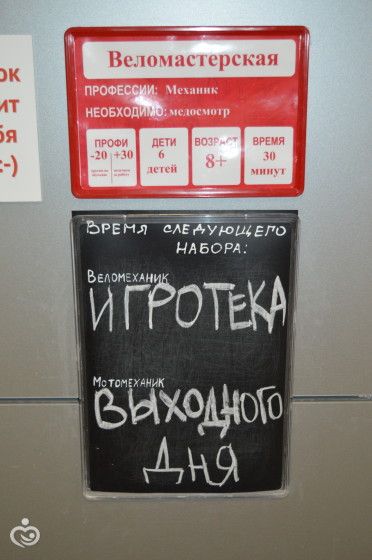 ок
ит
бя
:-)
Веломастерская
ПРОФЕССИИ: Механик
НЕОБХОДИМО: медосмотр
ПРОФИ
-20 +30
ДЕТИ
6
детей
ВОЗРАСТ
8+
ВРЕМЯ
30
минут
ВРЕМЯ СЛЕДУЮЩЕГО
НАБОРА:
ВЕЛОМЕХАНИК
ИГРОТЕКА
МОТОМЕХАНИК
ВЫХОДНОГО
ДНЯ